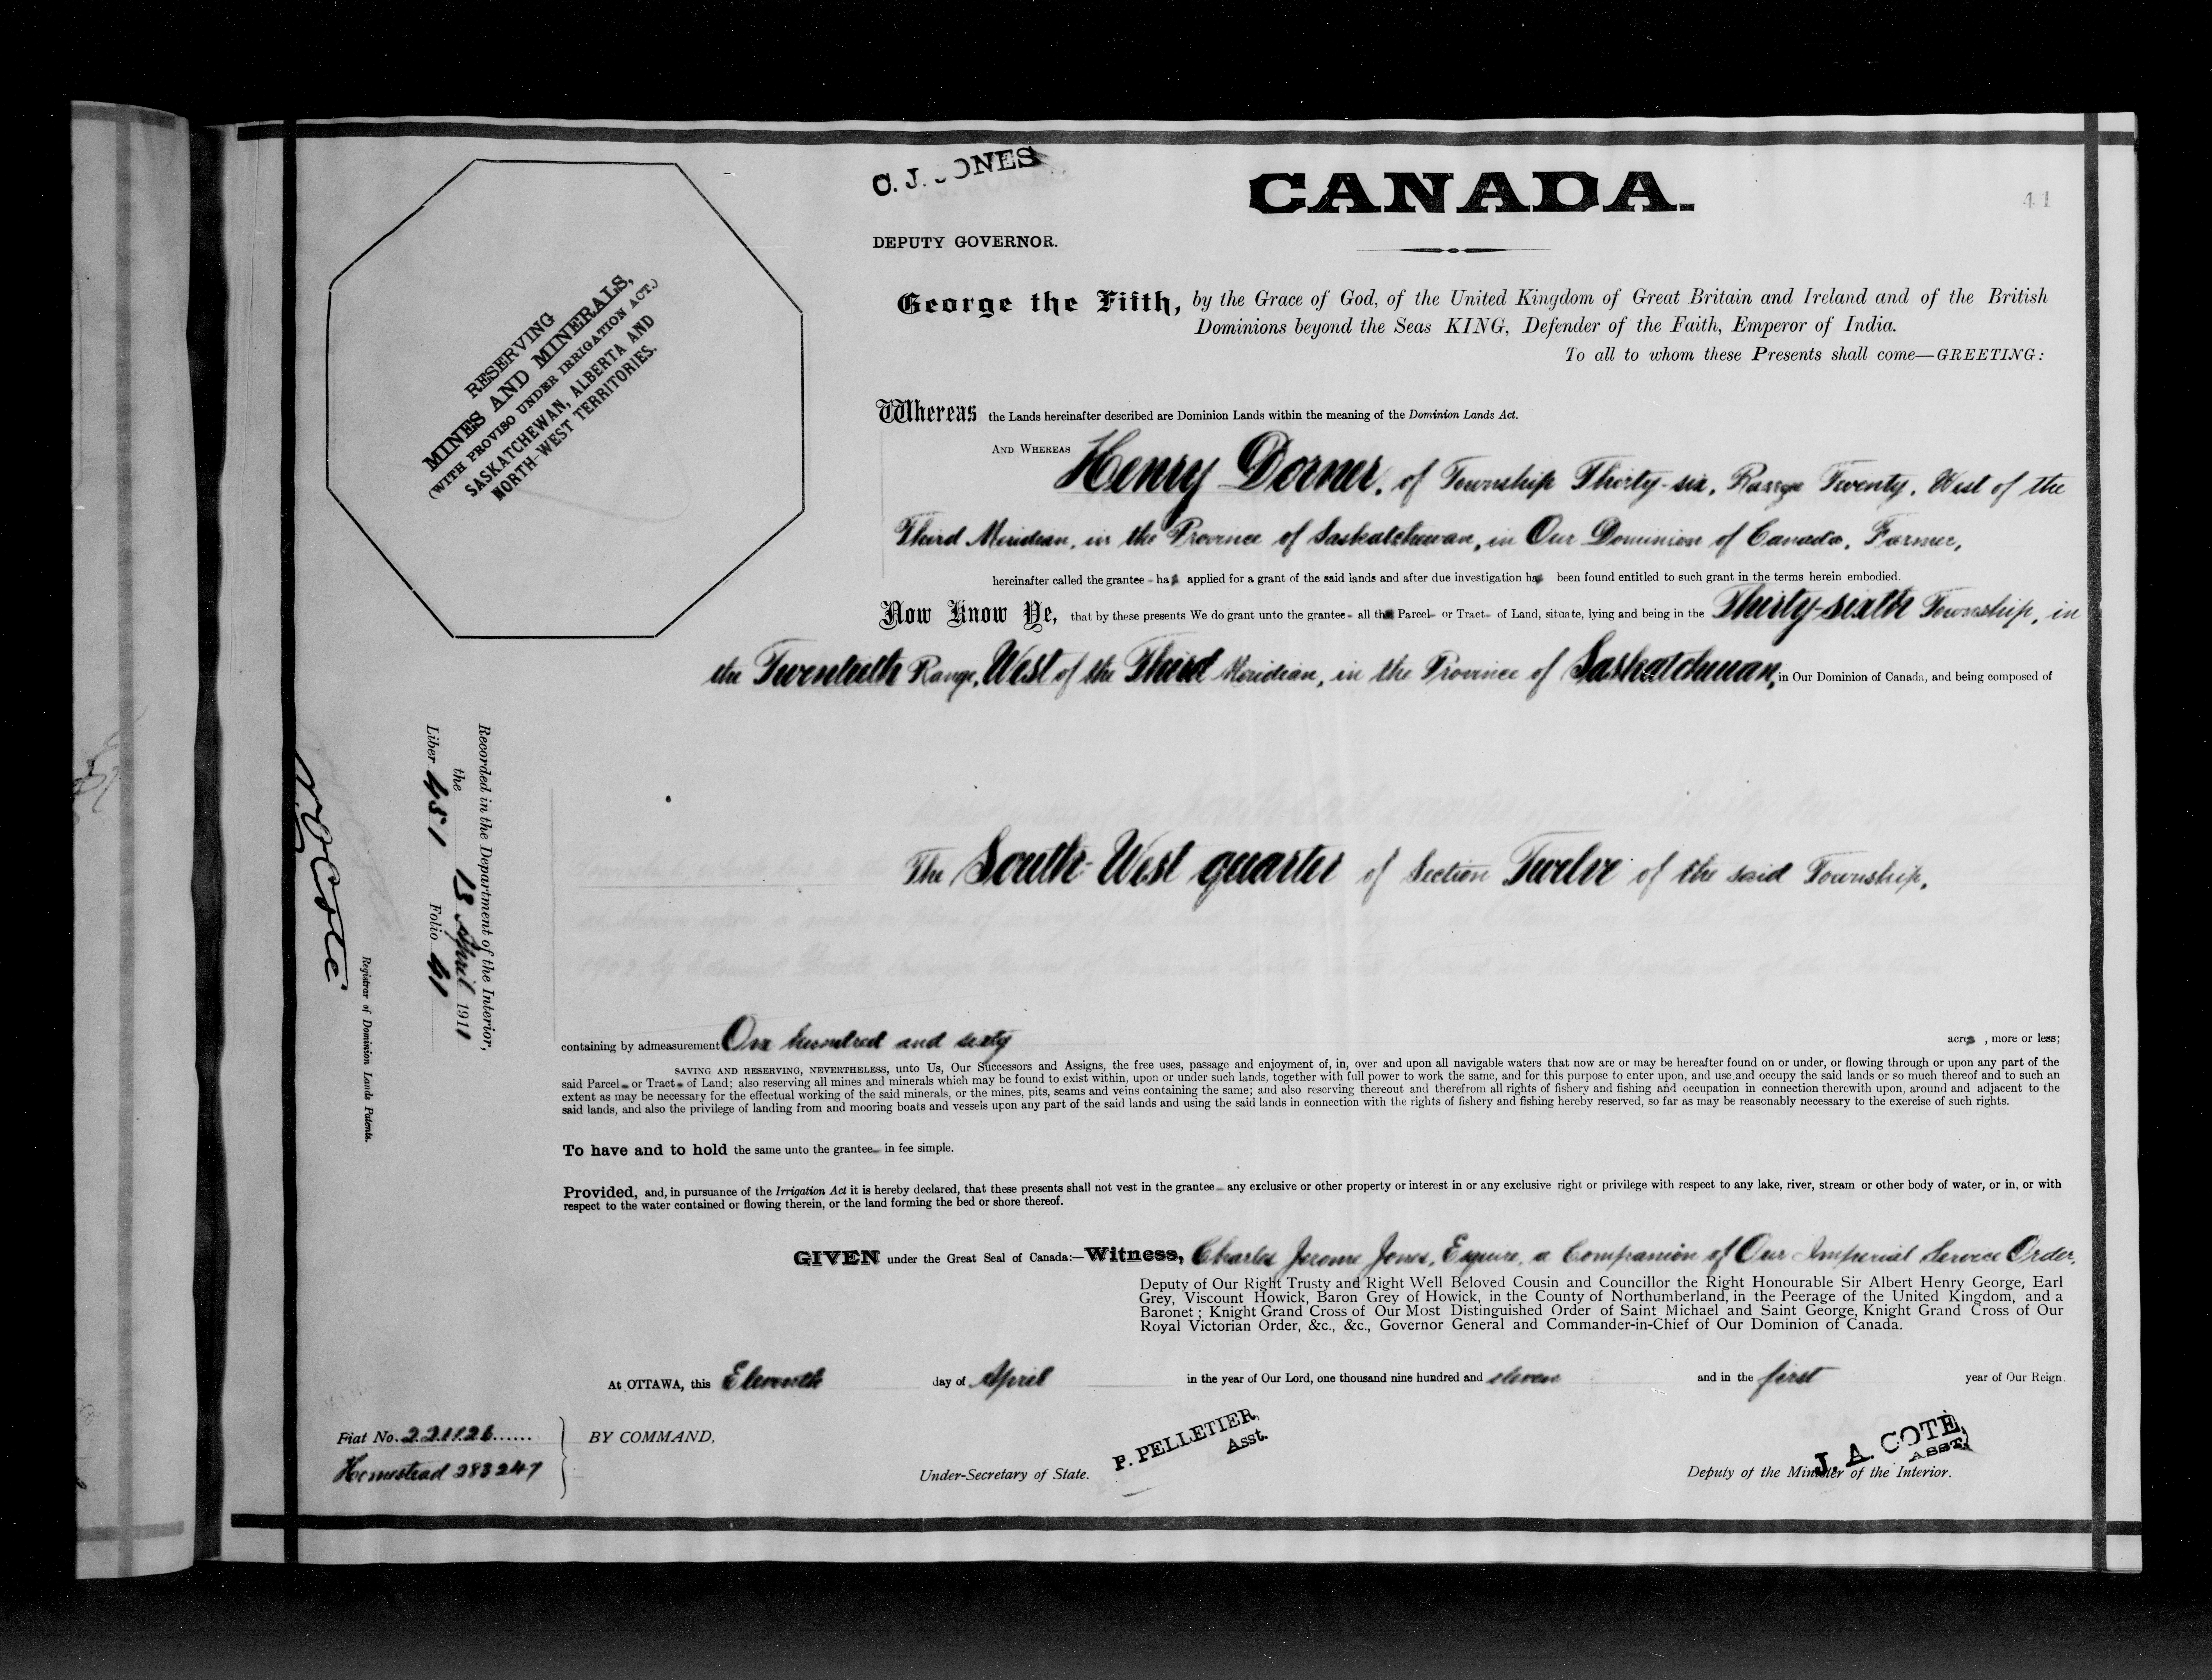 C. J. JONES
CANADA.
41
DEPUTY GOVERNOR.
George the Fifth, by the Grace of God, of the United Kingdom of Great Britain and Ireland and of the British
Dominions beyond the Seas KING, Defender of the Faith, Emperor of India.
To all to whom these Presents shall come—GREETING:
RESERVING
MINES AND MINERALS,
(WITH PROVISO UNDER IRRIGATION ACT.)
SASKATCHEWAN, ALBERTA AND
NORTH-WEST TERRITORIES.
Whereas the Lands hereinafter described are Dominion Lands within the meaning of the Dominion Lands Act.
AND WHEREAS Henry Dorner, of Township Thirty-six, Range Twenty, West of the
Third Meridian, in the Province of Saskatchewan, in Our Dominion of Canada, Farmer,
hereinafter called the grantee - has applied for a grant of the said lands and after due investigation has been found entitled to such grant in the terms herein embodied.
Now Know Ye, that by these presents We do grant unto the grantee - all th Parcel - or Tract - of Land, situate, lying and being in the Thirty-sixth Township, in
the Twentieth Range, West of the Third Meridian, in the Province of Saskatchewan, in Our Dominion of Canada, and being composed of
The South-West quarter of Section Twelve of the said Township,
Recorded in the Department of the Interior,
the 13 April 1911
Liber 451 Folio 41
N O Coté
Registrar of Dominion Lands Patents.
containing by admeasurement One hundred and sixty acres , more or less;
SAVING AND RESERVING, NEVERTHELESS, unto Us, Our Successors and Assigns, the free uses, passage and enjoyment of, in, over and upon all navigable waters that now are or may be hereafter found on or under, or flowing through or upon any part of the
said Parcel - or Tract - of Land; also reserving all mines and minerals which may be found to exist within, upon or under such lands, together with full power to work the same, and for this purpose to enter upon, and use and occupy the said lands or so much thereof and to such an
extent as may be necessary for the effectual working of the said minerals, or the mines, pits, seams and veins containing the same; and also reserving thereout and therefrom all rights of fishery and fishing and occupation in connection therewith upon, around and adjacent to the
said lands, and also the privilege of landing from and mooring boats and vessels upon any part of the said lands and using the said lands in connection with the rights of fishery and fishing hereby reserved, so far as may be reasonably necessary to the exercise of such rights.
To have and to hold the same unto the grantee - in fee simple.
Provided, and, in pursuance of the Irrigation Act it is hereby declared, that these presents shall not vest in the grantee - any exclusive or other property or interest in or any exclusive right or privilege with respect to any lake, river, stream or other body of water, or in, or with
respect to the water contained or flowing therein, or the land forming the bed or shore thereof.
GIVEN under the Great Seal of Canada:—Witness, Charles Jerome Jones, Esquire, a Companion of Our Imperial Service Order,
Deputy of Our Right Trusty and Right Well Beloved Cousin and Councillor the Right Honourable Sir Albert Henry George, Earl
Grey, Viscount Howick, Baron Grey of Howick, in the County of Northumberland, in the Peerage of the United Kingdom, and a
Baronet ; Knight Grand Cross of Our Most Distinguished Order of Saint Michael and Saint George, Knight Grand Cross of Our
Royal Victorian Order, &c., &c., Governor General and Commander-in-Chief of Our Dominion of Canada.
At OTTAWA, this Eleventh day of April in the year of Our Lord, one thousand nine hundred and eleven and in the first year of Our Reign.
Fiat No. 221126
Homestead 283247
BY COMMAND,
P. PELLETIER,
Asst.
Under-Secretary of State.
J. A. COTÉ,
ASST.
Deputy of the Minister of the Interior.